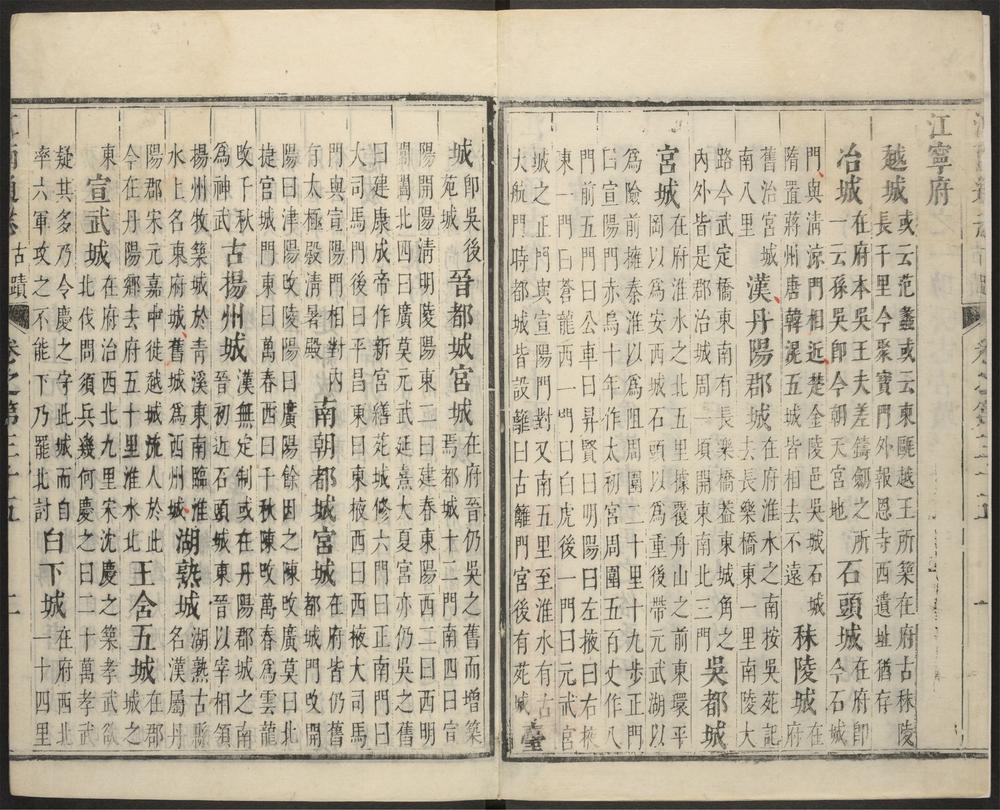 江寧府
越城 或云范蠡或云東甌越王所築在府古秣陵
長干里今聚寶門外報恩寺西遺址猶存
冶城 在府本吳王夫差鑄劍之所
一云孫吳即今朝天宮地 石頭城 在府即
今石城
門與清涼門相近楚金陵邑吳城石城
隋置蔣州唐韓滉五城皆相去不遠 秣陵城 在
府
舊治宮城
南八里 漢丹陽郡城 在府淮水之南按吳苑記
去長樂橋東一八里南陵大
路今武定橋東南有長樂橋葢東城角之
內外皆是郡治周一頃開東南北三門 吳都城
宮城 在府淮水之北五里據覆舟山之前東環平
岡以為安西城石頭以為重後帶元武湖以
為險前擁秦淮以為阻周圍二十里十九步正門
曰宣陽門赤烏十年作太初宮周圍五百丈作八
門前五門曰公車曰昇賢曰明陽曰左掖曰右掖
東一門曰蒼龍西一門曰白虎後一門曰元武宮
城之正門與宣陽門對又南五里至淮水有古
大航門時都城皆設離曰古離門宮後有苑城 臺
城 即吳後
苑城 晉都城宮城 在府晉仍吳之舊而增築
焉都城十二門南四曰宣
陽開陽清明陵陽東三曰建春東陽西二曰西明
閶闔北四曰廣莫元武延熹大夏宮亦仍吳之舊
曰建康成帝作新宮繕苑城修六門曰正南門曰
大司馬門後曰平昌東曰東掖西曰西掖大司馬
門與宣陽門相對內
有太極殿清暑殿 南朝都城宮城 在府皆仍舊
都城門改開
陽曰津陽改陵陽曰廣陽餘因之陳改廣莫曰北
捷宮城門東曰萬春西曰千秋陳改萬春為雲龍
改千秋
為神武 古揚州城 漢無定制或在丹陽郡城之南
晉初近石頭城東晉以宰相領
揚州牧築城於青溪東南臨淮
水上名東府城舊城為西州城 湖熟城 湖熟古縣
名漢屬丹
陽郡宋元嘉中徙越城流人於此
今在丹陽鄉去府五十里淮水北 王舍五城 在郡
城之
東 宣武城 在府治西北九里宋沈慶之築孝武欲
北伐問須兵幾何慶之曰二十萬孝武
疑其多乃令慶之守此城而自
率六軍攻之不能下乃罷北討 白下城 在府西北
一十四里
江南通志 古蹟 卷之第三十五 二